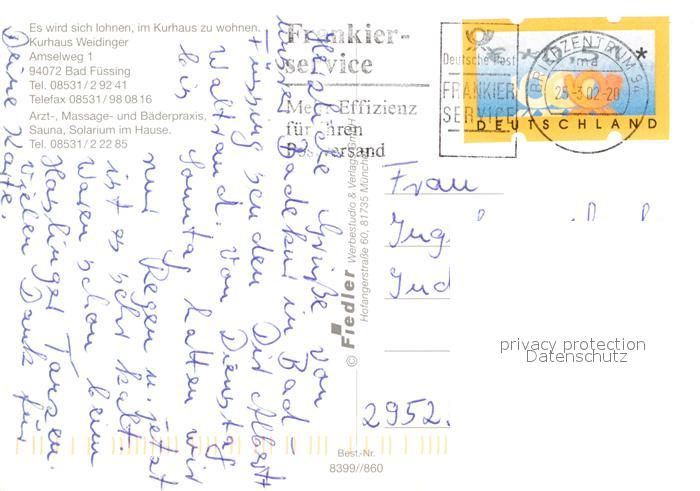 Es wird sich lohnen, im Kurhaus zu wohnen.
Kurhaus Weidinger
Amselweg 1
94072 Bad Füssing
Tel. 08531/2 92 41
Telefax 08531/98 08 16
Arzt-, Massage- und Bäderpraxis,
Sauna, Solarium im Hause.
Tel. 08531/2 22 85
Frankier-
service
Mehr Effizienz
für Ihren
Postversand
Deutsche Post
FRANKIER
SERVICE
BRIEFZENTRUM 94
ma
25-3.02-20
DEUTSCHLAND
Herzliche Grüße von
unserer Badekur in Bad-
Füssing senden Dir Albert
Waltraud. Von Dienstag
bis Sonntag hatten wir
nur Regen u. jetzt
ist es sehr kalt.
Waren schon beim
Haslinger Tanzen.
Vielen Dank für
Deine Karte.
© Fiedler Werbestudio & Verlag GmbH
Hofangerstraße 60, 81735 München
Frau
Ing
Ind
2952.
privacy protection
Datenschutz
Best.-Nr.
8399//860